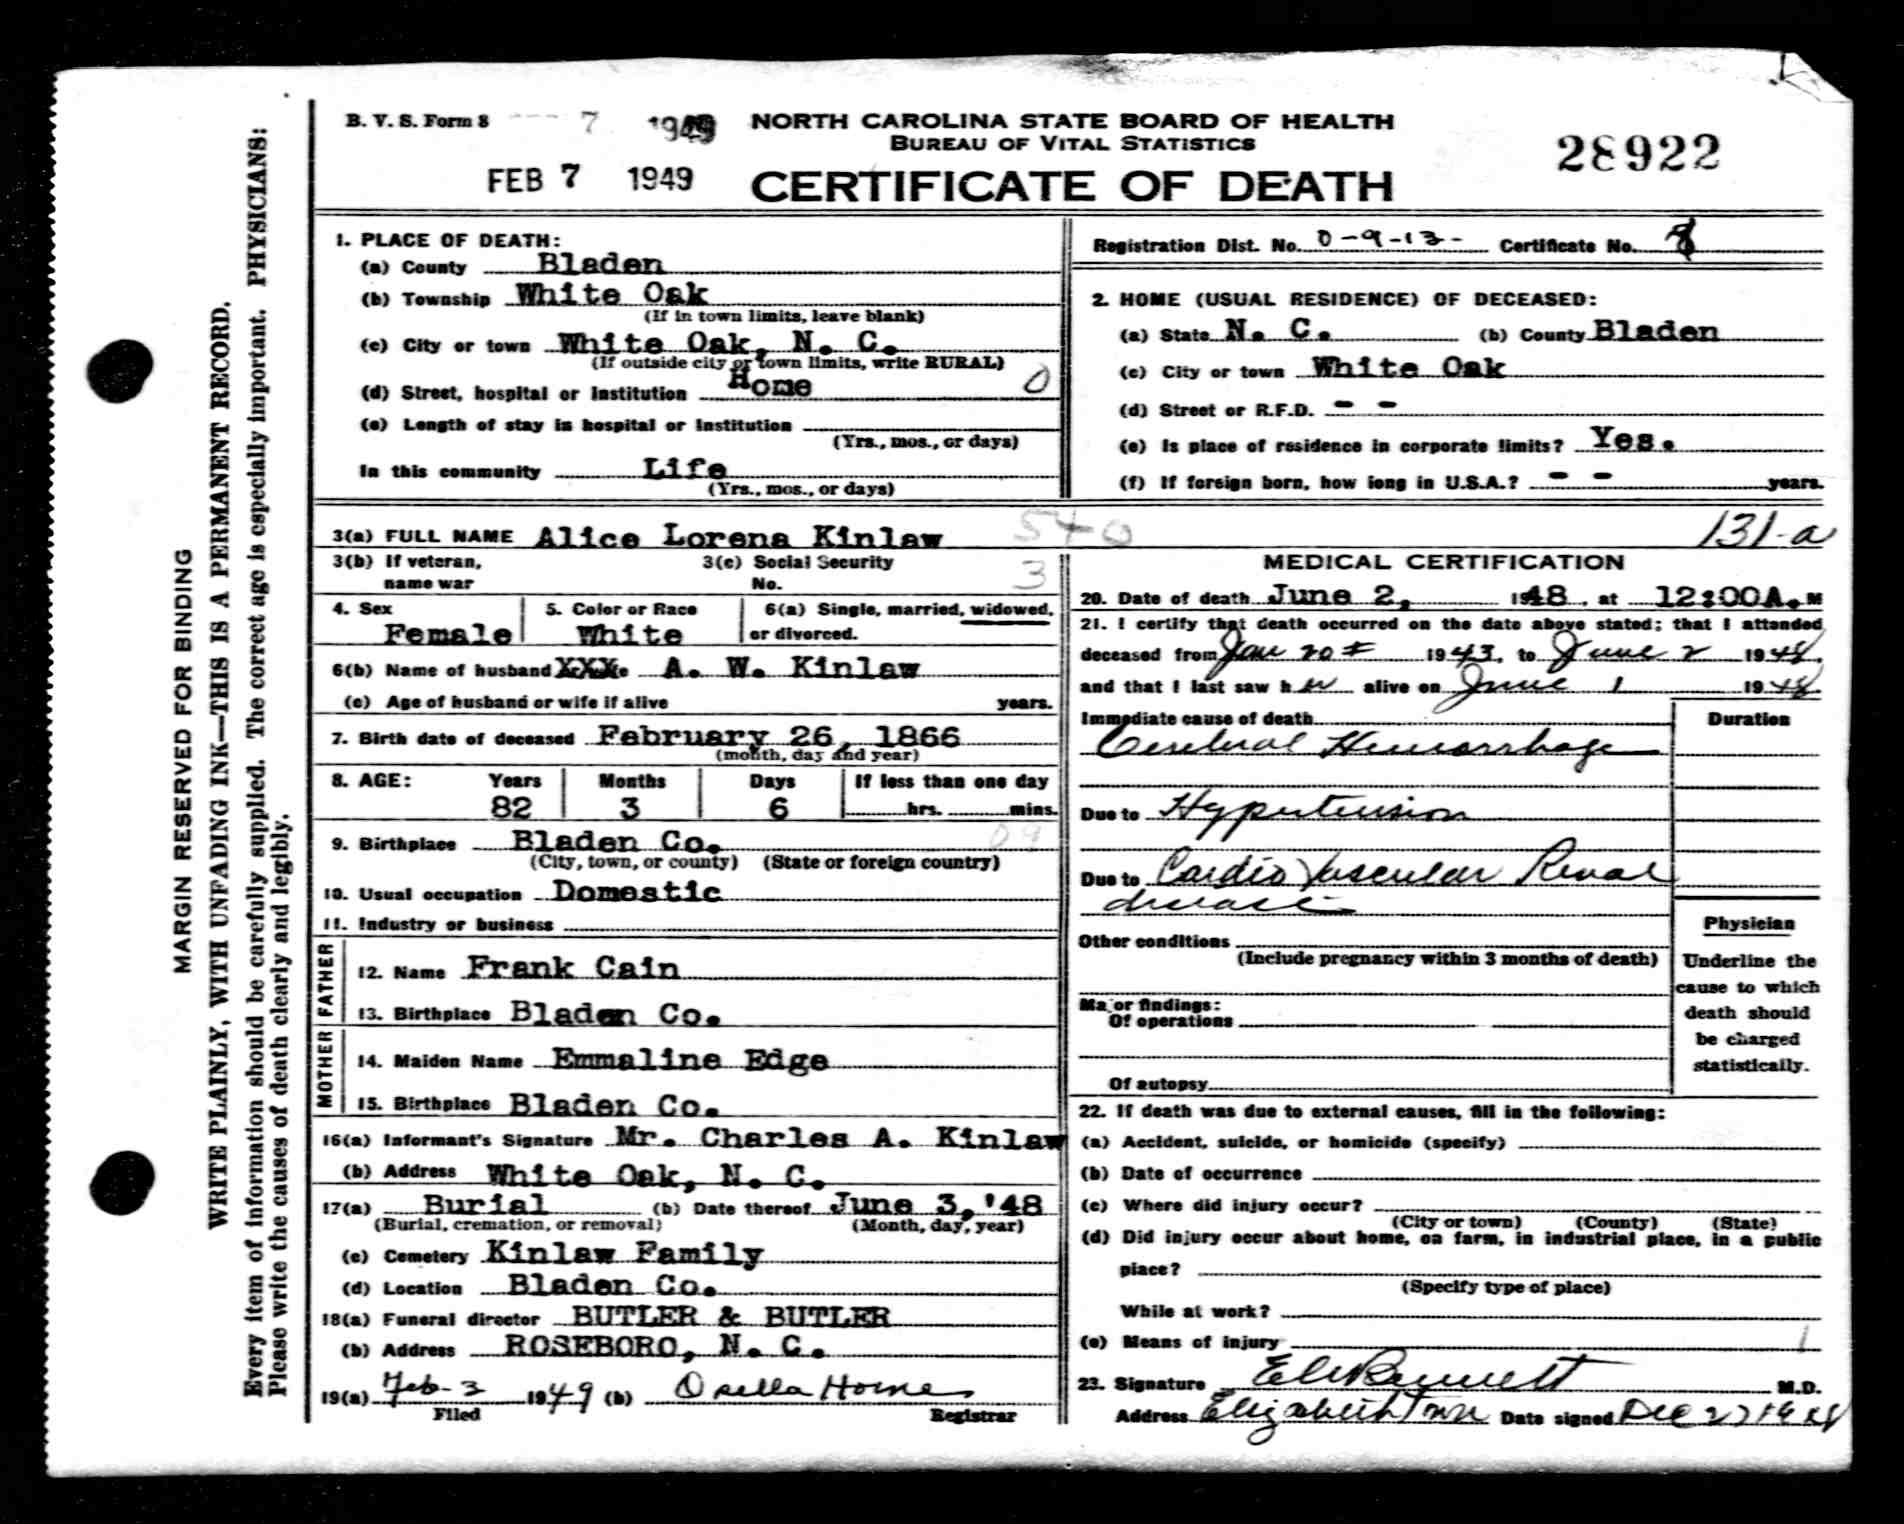 B. V. S. Form 8
7 1949
FEB 7 1949
NORTH CAROLINA STATE BOARD OF HEALTH
BUREAU OF VITAL STATISTICS
CERTIFICATE OF DEATH
28922
1. PLACE OF DEATH:
(a) County Bladen
(b) Township White Oak
(If in town limits, leave blank)
(c) City or town White Oak, N. C.
(If outside city or town limits, write RURAL)
(d) Street, hospital or institution Home 0
(e) Length of stay in hospital or institution
(Yrs., mos., or days)
In this community Life
(Yrs., mos., or days)
Registration Dist. No. 0-9-13- Certificate No.
2. HOME (USUAL RESIDENCE) OF DECEASED:
(a) State N. C. (b) County Bladen
(c) City or town White Oak
(d) Street or R.F.D. - -
(e) Is place of residence in corporate limits? Yes.
(f) If foreign born, how long in U.S.A.? - - years.
3(a) FULL NAME Alice Lorena Kinlaw 540
131-a
3(b) If veteran, 3(c) Social Security
name war No. 3
4. Sex 5. Color or Race 6(a) Single, married, widowed,
Female White or divorced.
6(b) Name of husband XXXXe A. W. Kinlaw
(c) Age of husband or wife if alive years.
7. Birth date of deceased February 26, 1866
(month, day and year)
8. AGE: Years Months Days If less than one day
82 3 6 hrs. mins.
09
9. Birthplace Bladen Co.
(City, town, or county) (State or foreign country)
10. Usual occupation Domestic
11. Industry or business
FATHER
12. Name Frank Cain
13. Birthplace Bladen Co.
MOTHER
14. Maiden Name Emmaline Edge
15. Birthplace Bladen Co.
16(a) Informant's Signature Mr. Charles A. Kinlaw
(b) Address White Oak, N. C.
17(a) Burial (b) Date thereof June 3, '48
(Burial, cremation, or removal) (Month, day, year)
(c) Cemetery Kinlaw Family
(d) Location Bladen Co.
18(a) Funeral director BUTLER & BUTLER
(b) Address ROSEBORO, N. C.
19(a) Feb-3 1949 (b) Osella Horne
Filed Registrar
MEDICAL CERTIFICATION
20. Date of death June 2, 1948, at 12:00A.M
21. I certify that death occurred on the date above stated; that I attended
deceased from Jan 20 1943, to June 2 1948,
and that I last saw her alive on June 1 1948
Immediate cause of death Duration
Cerebral Hemorrhage
Due to Hypertension
Due to Cardio Vascular Renal
disease
Other conditions
(Include pregnancy within 3 months of death)
Major findings:
Of operations
Of autopsy
Physician
Underline the
cause to which
death should
be charged
statistically.
22. If death was due to external causes, fill in the following:
(a) Accident, suicide, or homicide (specify)
(b) Date of occurrence
(c) Where did injury occur?
(City or town) (County) (State)
(d) Did injury occur about home, on farm, in industrial place, in a public
place?
(Specify type of place)
While at work?
(e) Means of injury
23. Signature Bennett M.D.
Address Elizabethtown Date signed Dec 27 1948
MARGIN RESERVED FOR BINDING
WRITE PLAINLY, WITH UNFADING INK—THIS IS A PERMANENT RECORD.
Every item of information should be carefully supplied. The correct age is especially important. PHYSICIANS:
Please write the causes of death clearly and legibly.